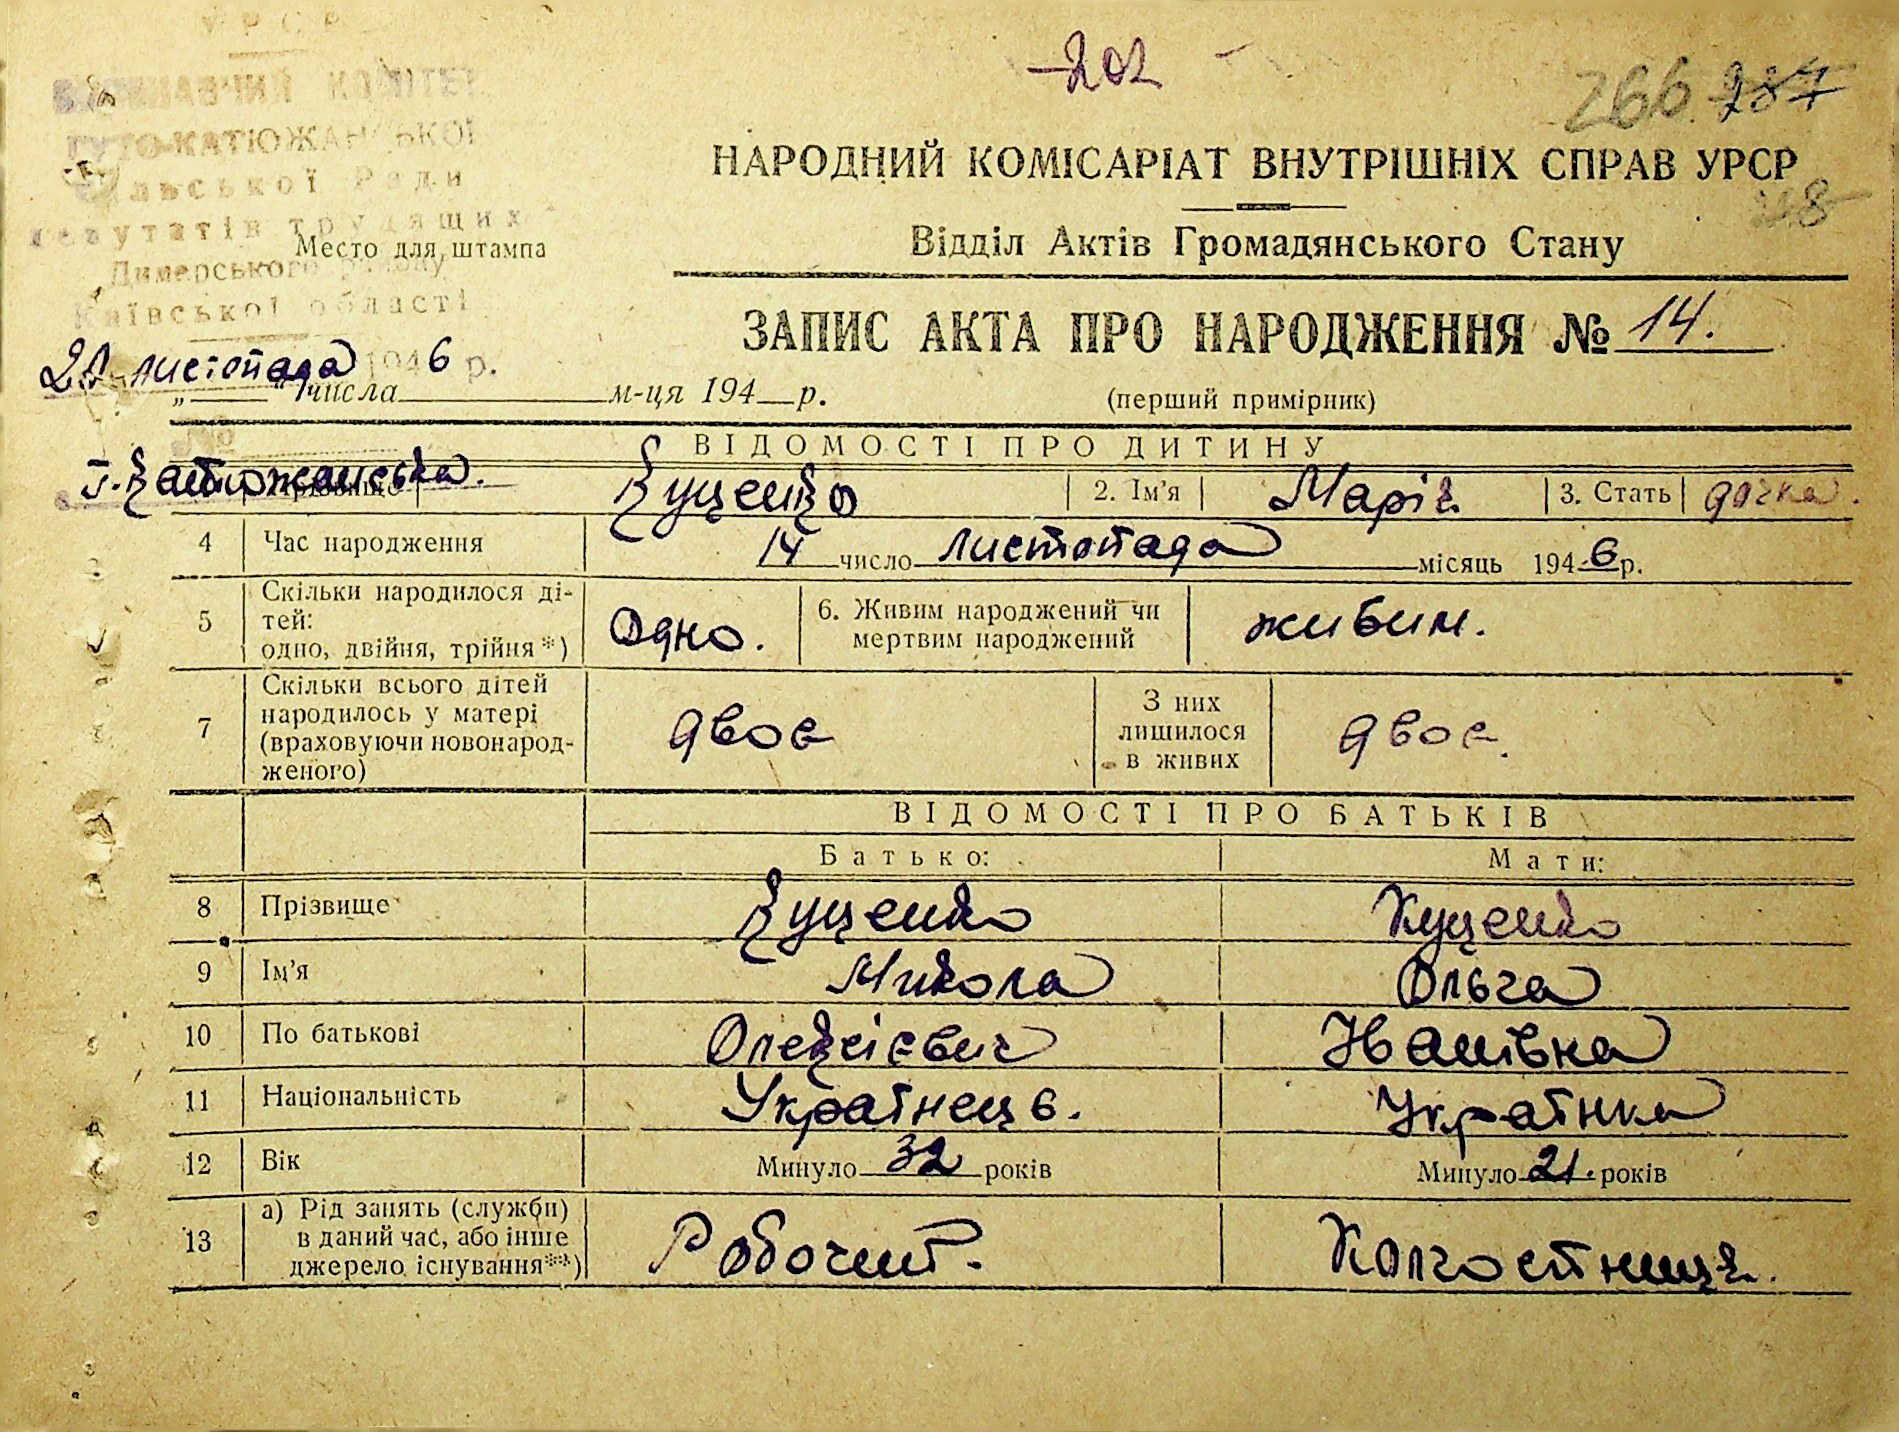 УРСР
ВИКОНАВЧИЙ КОМІТЕТ
ГУТО-КАТЮЖАНСЬКОЇ
сільської Ради
депутатів трудящих
Димерського району
Київської області
Место для штампа
20 листопада 1946 р.
„ “ числа м-ця 194 р.
Г. Катюжанська.
202
266 287
НАРОДНИЙ КОМІСАРІАТ ВНУТРІШНІХ СПРАВ УРСР
Відділ Актів Громадянського Стану
ЗАПИС АКТА ПРО НАРОДЖЕННЯ № 14.
(перший примірник)
ВІДОМОСТІ ПРО ДИТИНУ
Прізвище Куценко 2. Ім'я Марія 3. Стать дочка.
4 Час народження 14 число листопада місяць 1946 р.
5 Скільки народилося ді-
тей:
одно, двійня, трійня*) Одно. 6. Живим народжений чи
мертвим народжений живим.
7 Скільки всього дітей
народилось у матері
(враховуючи новонарод-
женого) двоє З них
лишилося
в живих двоє.
ВІДОМОСТІ ПРО БАТЬКІВ
Батько: Мати:
8 Прізвище Куценко Куценко
9 Ім'я Микола Ольга
10 По батькові Олексієвич Іванівна
11 Національність Українець. Українка
12 Вік Минуло 32 років Минуло 21. років
13 а) Рід занять (служби)
в даний час, або інше
джерело існування**) Робочий. Колгоспниця.